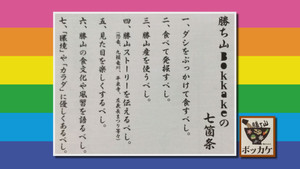 勝ち山Bokkakeの
七箇条
一、ダシをぶっかけて食すべし。
二、食べて発採すべし。
三、勝山産を使うべし。
四、勝山ストーリーを伝えるべし。
五、見た目を楽しくするべし。
六、勝山の食文化や風習を語るべし。
七、「環境」や「カラダ」に優しくあるべし。
ボッカケ